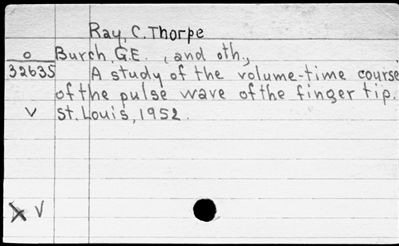 Ray, C. Thorpe
o Burch, G.E. , and oth.,
32635 A study of the volume-time course
of the pulse wave of the finger tip.
v St. Louis, 1952.
V